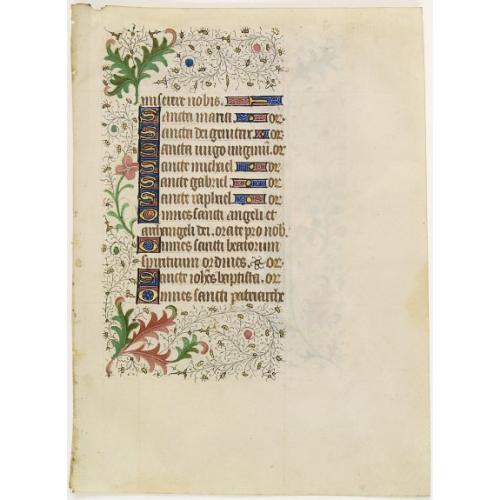 miserere nobis.
Sancta maria or.
Sancta dei genitrix or.
Sancta uirgo uirginū. or
Sancte michael or.
Sancte gabriel or.
Sancte raphael or.
Omnes sancti angeli et
archangeli dei. orate pro nob.
Omnes sancti beatorum
spirituum ordines. or.
Sancte iohēs baptista. or.
Omnes sancti patriarche